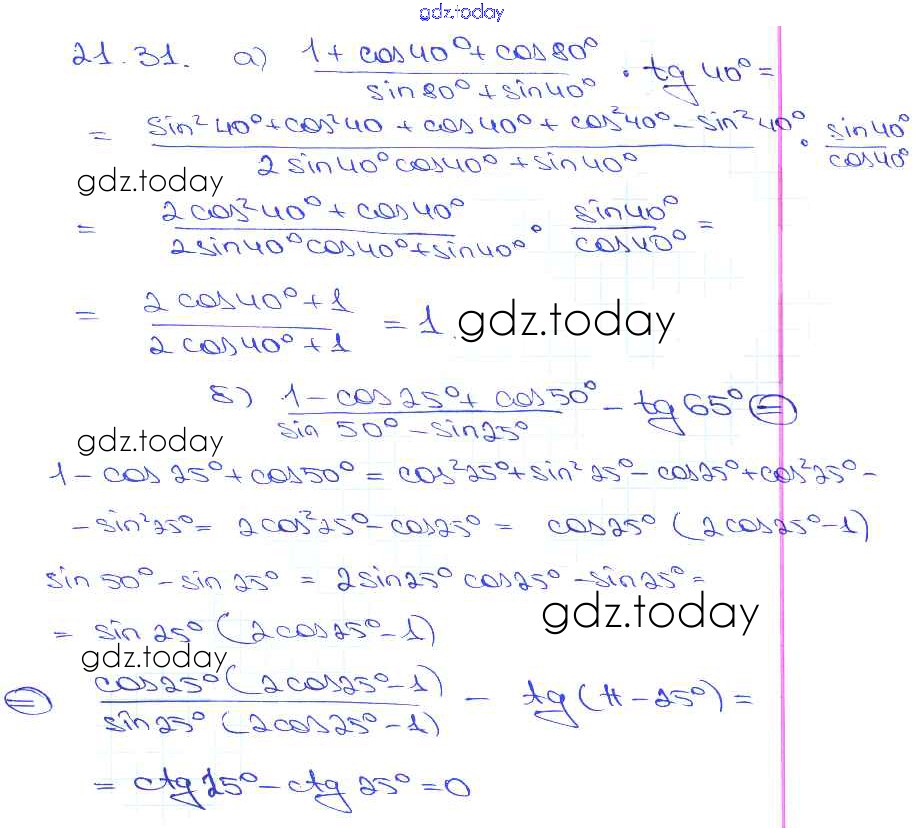 gdz.today
21.31. а) (1 + cos 40° + cos 80°)/(sin 80° + sin 40°) · tg 40° =
= (sin² 40° + cos² 40 + cos 40° + cos² 40° - sin² 40°)/(2 sin 40° cos 40° + sin 40°) · sin 40°/cos 40°
gdz.today
= (2 cos² 40° + cos 40°)/(2 sin 40° cos 40° + sin 40°) · sin 40°/cos 40° =
= (2 cos 40° + 1)/(2 cos 40° + 1) = 1. gdz.today
б) (1 - cos 25° + cos 50°)/(sin 50° - sin 25°) - tg 65° =
gdz.today
1 - cos 25° + cos 50° = cos² 25° + sin² 25° - cos 25° + cos² 25° -
- sin² 25° = 2 cos² 25° - cos 25° = cos 25° (2 cos 25° - 1)
sin 50° - sin 25° = 2 sin 25° cos 25° - sin 25° =
gdz.today
= sin 25° (2 cos 25° - 1)
gdz.today
= cos 25° (2 cos 25° - 1)/(sin 25° (2 cos 25° - 1)) - tg (π - 25°) =
= ctg 25° - ctg 25° = 0